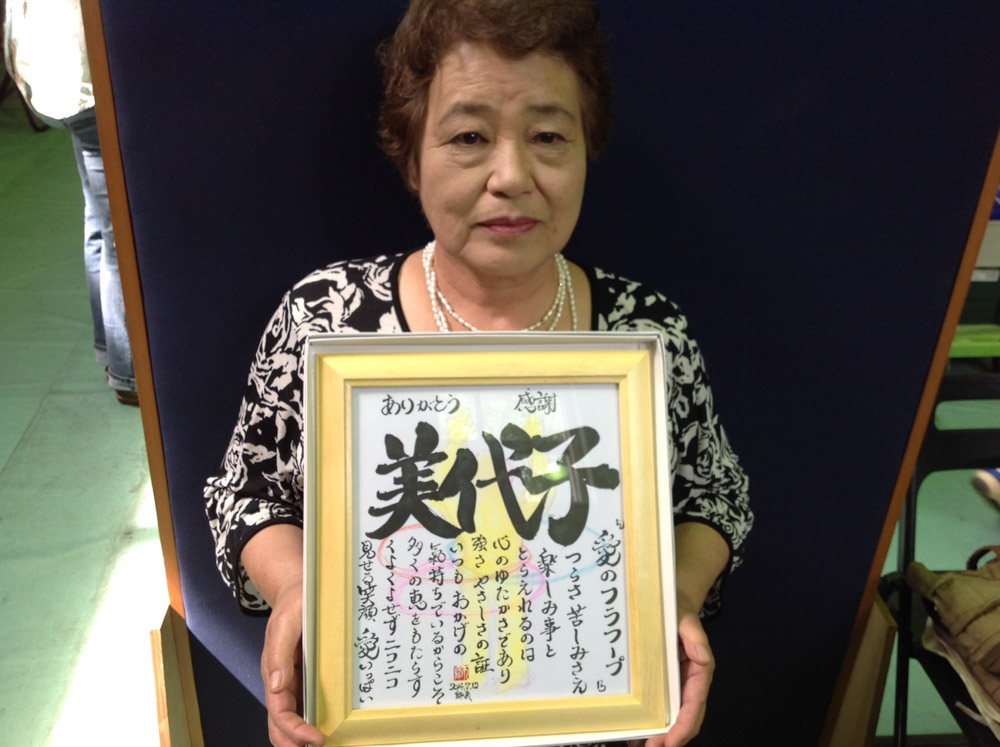 ありがとう 感謝
美代子
「愛のフラフープ」
つらさ苦しみさえ
楽しみ事と
とらえれるのは
心のゆたかさであり
強さ やさしさの証
いつも おかげの
気持ちでいるからこそ
多くの恵をもたらす
くよくよせずニコニコ
見せる笑顔 愛いっぱい
2014.7.12